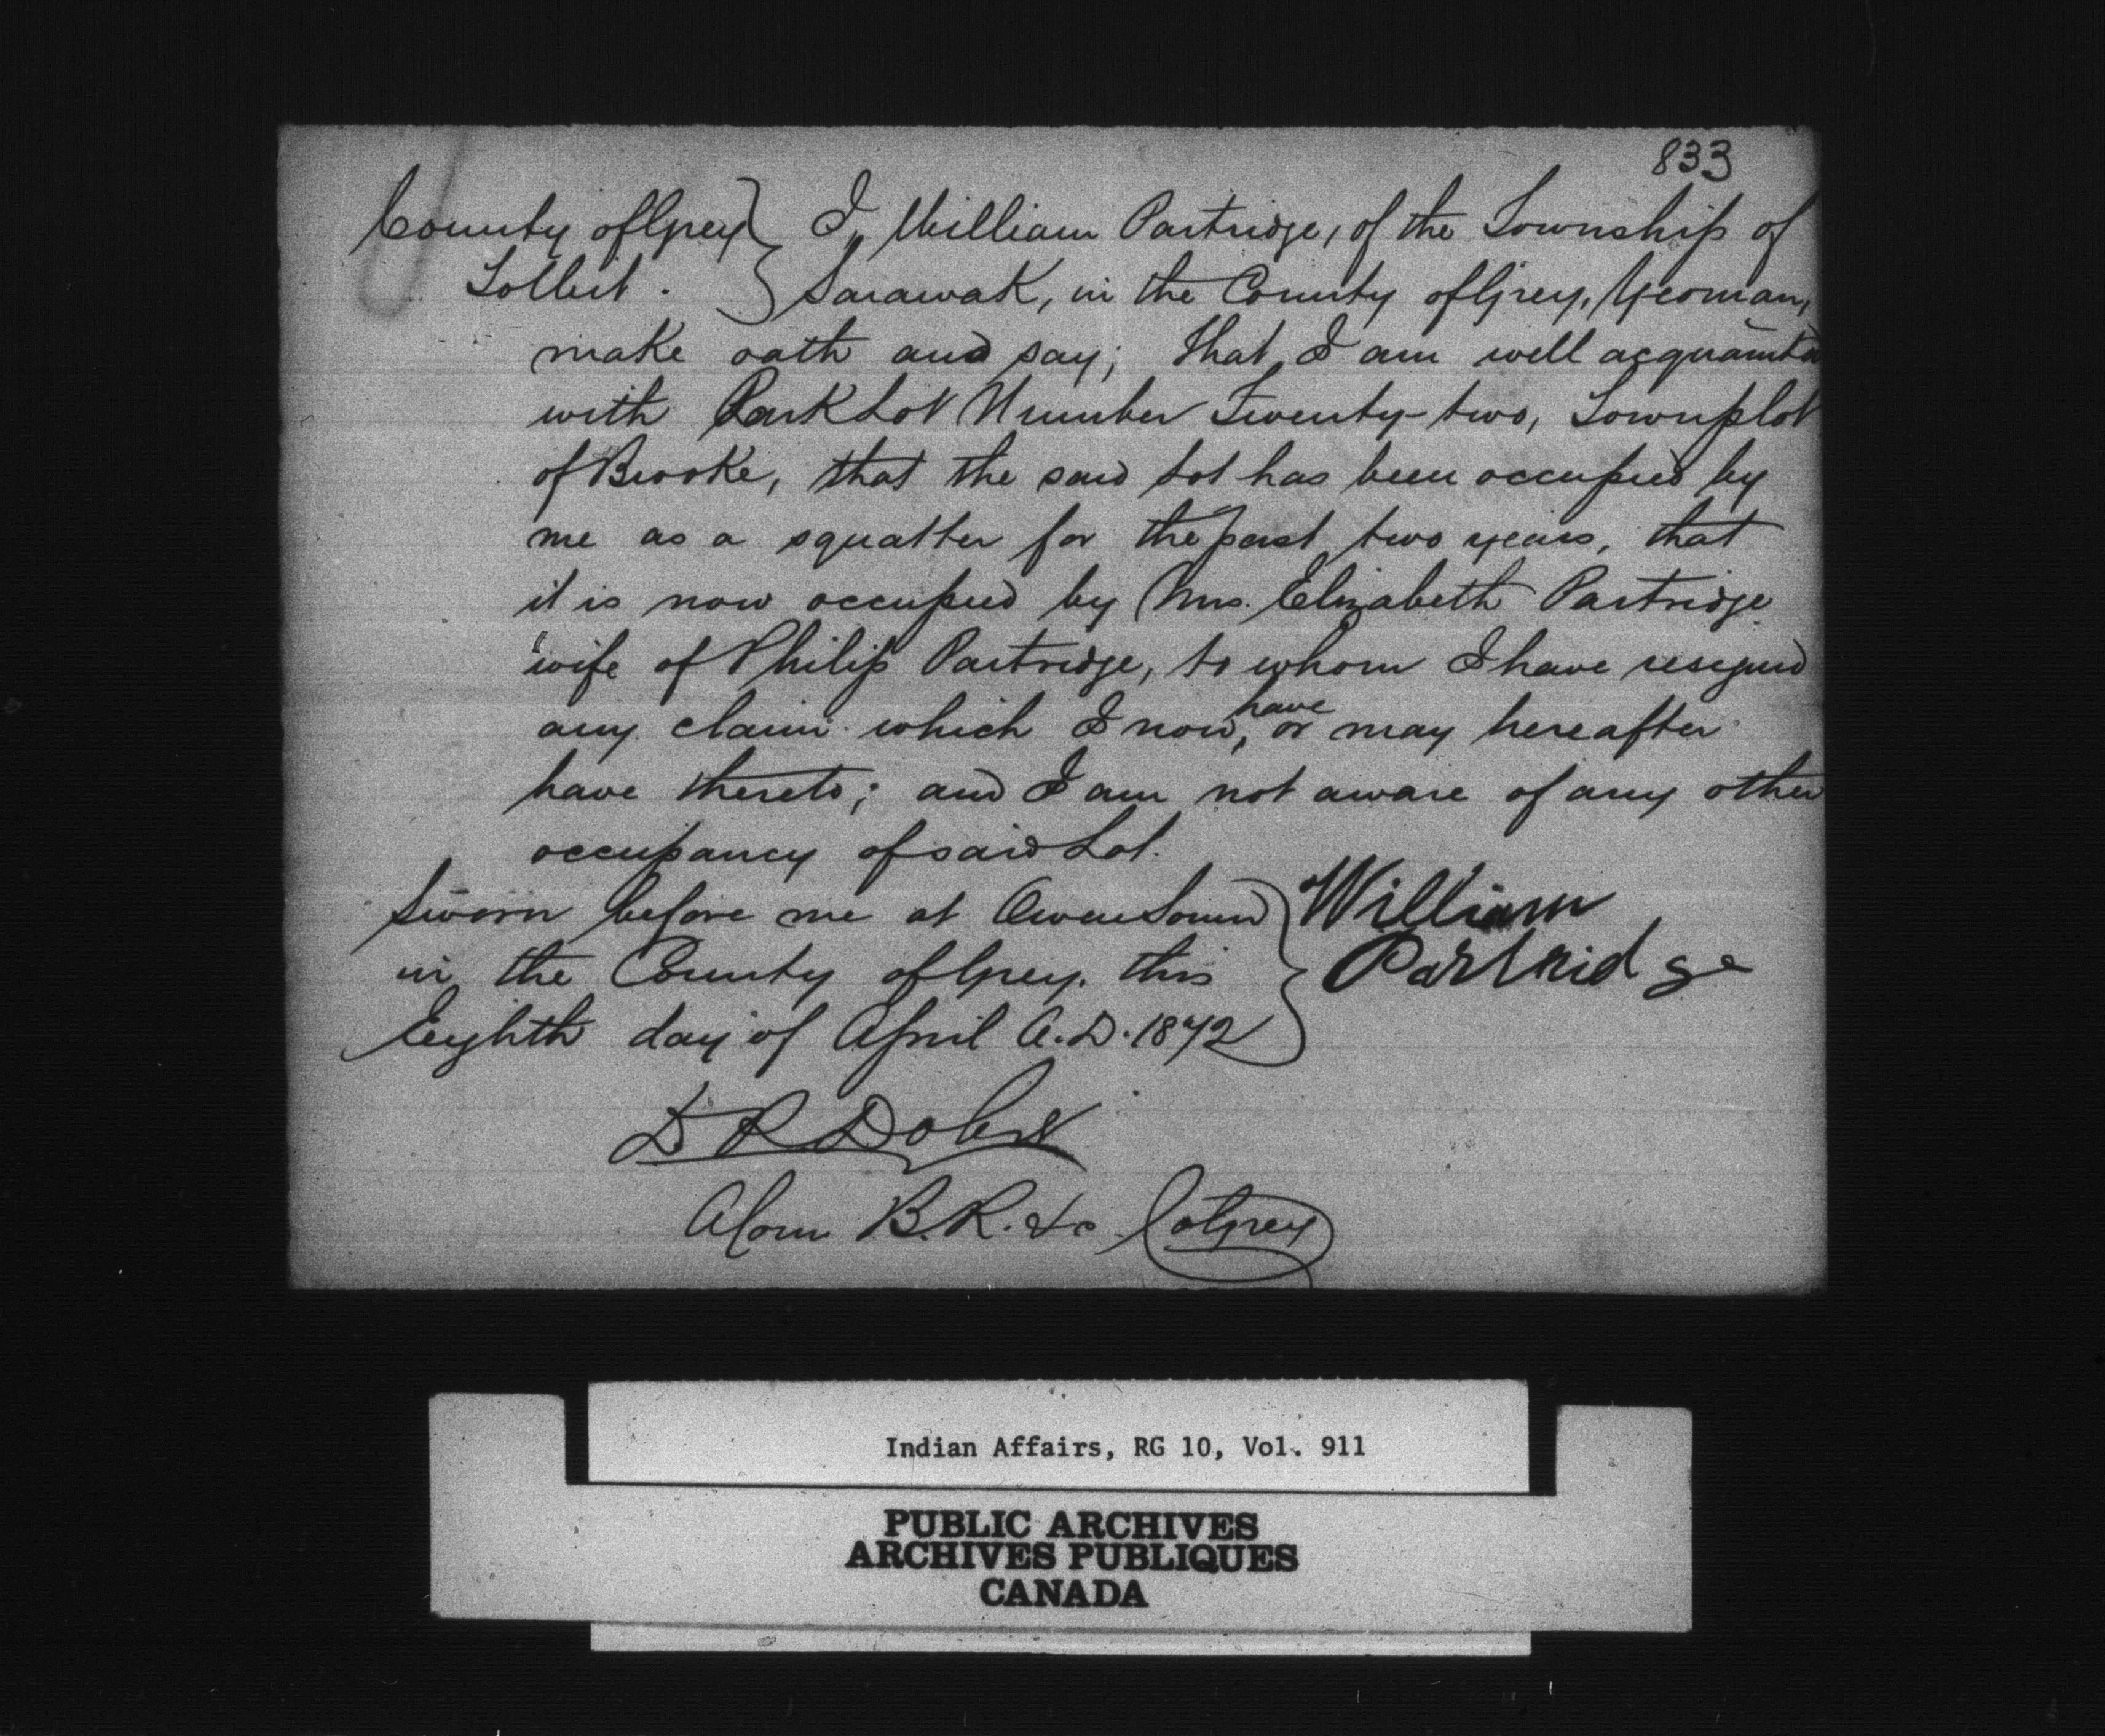 833
County of Grey } I, William Partridge, of the Township of
To Wit. } Sarawak, in the County of Grey, Yeoman,
make oath and say; that I am well acquainted
with Park Lot Number Twenty-two, Townplot
of Brooke, that the said Lot has been occupied by
me as a squatter for the past two years, that
it is now occupied by Mrs. Elizabeth Partridge
wife of Philip Partridge, to whom I have resigned
any claim which I now, have or may hereafter
have thereto; and I am not aware of any other
occupancy of said Lot.
Sworn before me at Owen Sound } William
in the County of Grey. this } Partridge
Eighth day of April A.D. 1872
A Com B.R. &c Co Grey
Indian Affairs, RG 10, Vol. 911
PUBLIC ARCHIVES
ARCHIVES PUBLIQUES
CANADA